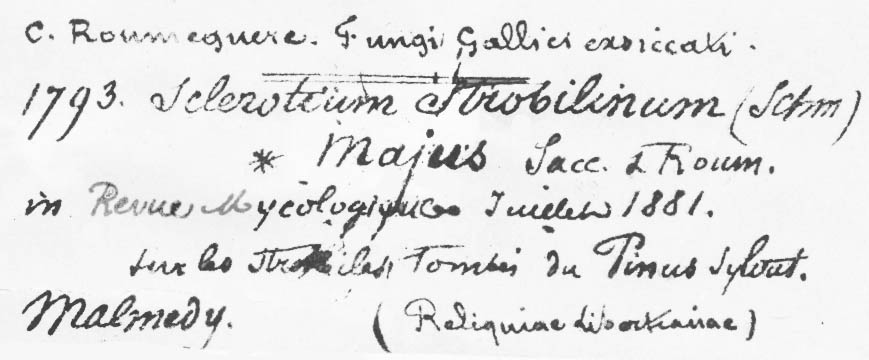 C. Roumeguere. Fungi Gallici exsiccati.
1793. Sclerotium Strobilinum (Schm)
* Majus Sacc. & Roum.
in Revue Mycologique Juillet 1881.
sur les strobiles Tombés du Pinus sylvest.
Malmedy. (Reliquiae Libertianae)